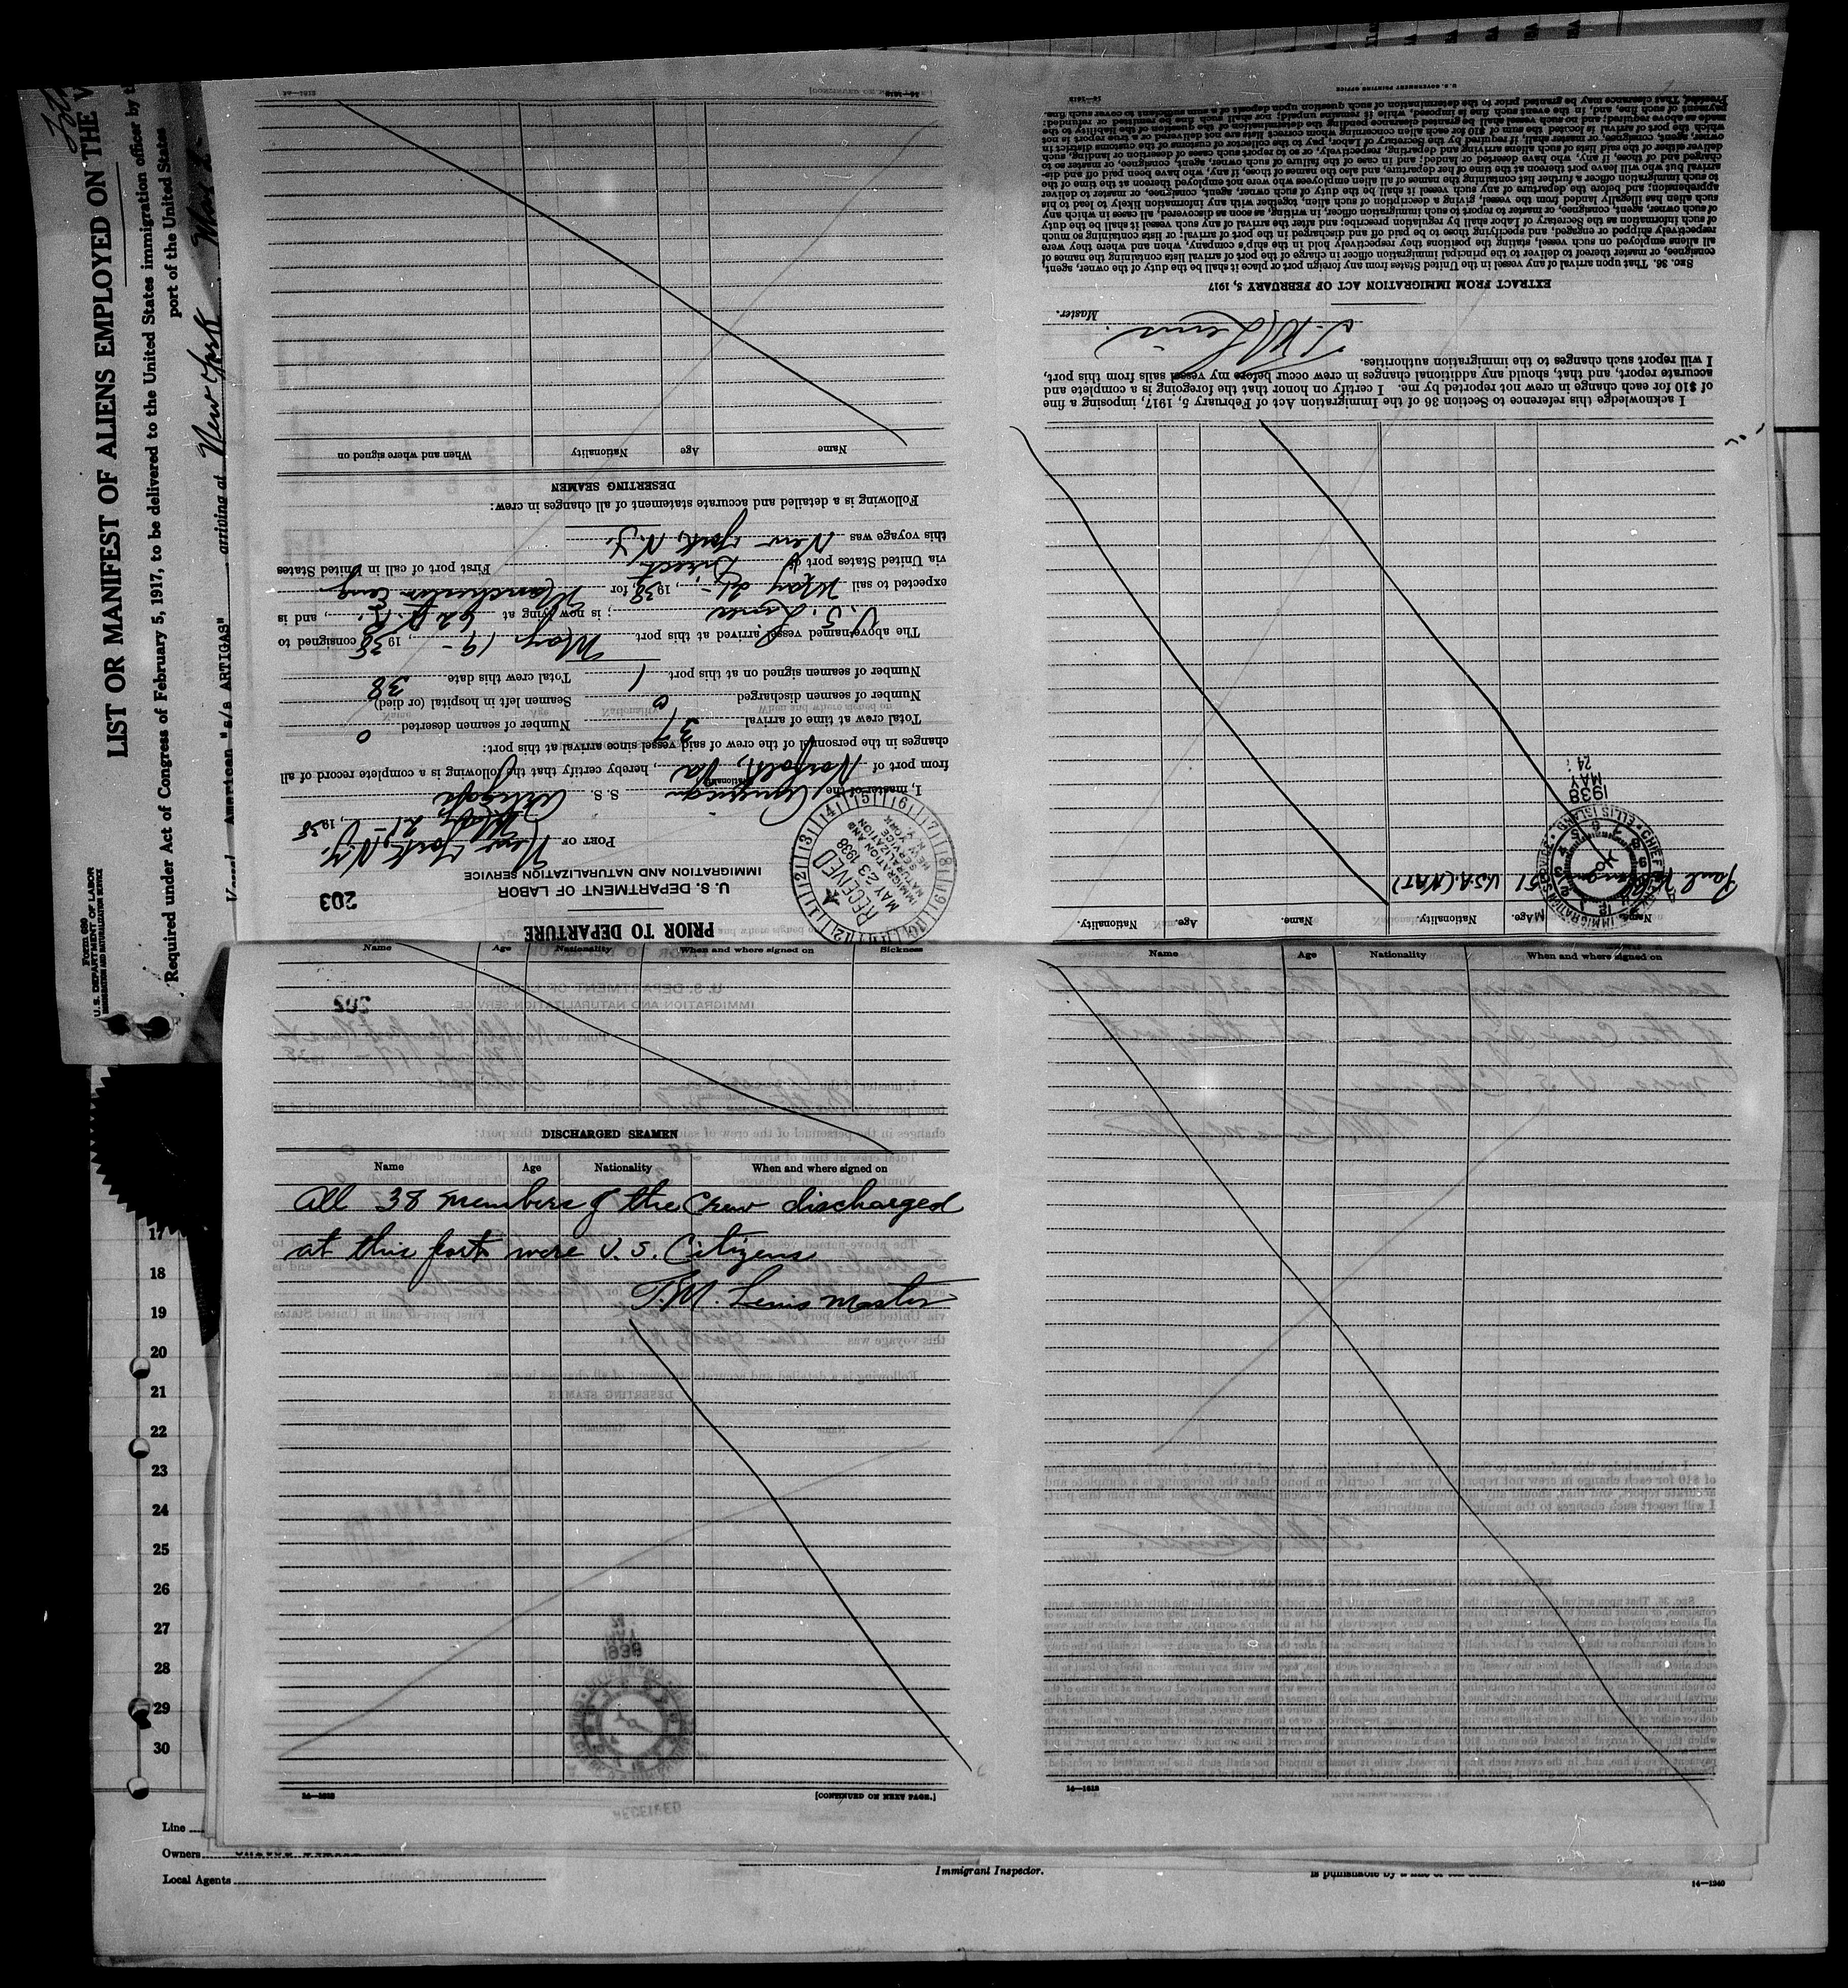 Form 680
U.S. DEPARTMENT OF LABOR
IMMIGRATION AND NATURALIZATION SERVICE
LIST OR MANIFEST OF ALIENS EMPLOYED ON THE
Required under Act of Congress of February 5, 1917, to be delivered to the United States immigration officer by
port of the United States
Vessel American "s/s ARTIGAS" arriving at New York
PRIOR TO DEPARTURE
203
U. S. DEPARTMENT OF LABOR
IMMIGRATION AND NATURALIZATION SERVICE
RECEIVED
MAY 23 1938
IMMIGRATION AND
NATURALIZATION
SERVICE
NEW YORK
PORT OF New York, N.Y.
May 21-, 1938
I, master of the American S. S. Artigas
(Nationality)
from port of Norfolk, Va, hereby certify that the following is a complete record of all
changes in the personnel of the crew of said vessel since arrival at this port:
Total crew at time of arrival 37 Number of seamen deserted 0
Number of seamen discharged 0 Seamen left in hospital (or died)
Number of seamen signed on at this port 1 Total crew this date 38
The above-named vessel arrived at this port May 19-, 1938 consigned to
U.S. Lines; is now lying at 62 N.R., and is
expected to sail May 21-, 1938, for Manchester Eng
via United States port of Direct First port of call in United States
this voyage was New York, N.Y.
Following is a detailed and accurate statement of all changes in crew:
DESERTING SEAMEN
Name Age Nationality When and where signed on
14—1212 [CONTINUED ON
Name. Age. Nationality. Name. Age. Nationality.
Paul 51 U.S.A. (NAT)
1938
MAY
24
I acknowledge this reference to Section 36 of the Immigration Act of February 5, 1917, imposing a fine
of $10 for each change in crew not reported by me. I certify on honor that the foregoing is a complete and
accurate report, and that, should any additional changes in crew occur before my vessel sails from this port,
I will report such changes to the immigration authorities.
T. M. Lewis
Master.
EXTRACT FROM IMMIGRATION ACT OF FEBRUARY 5, 1917
SEC. 36. That upon arrival of any vessel in the United States from any foreign port or place it shall be the duty of the owner, agent,
consignee, or master thereof to deliver to the principal immigration officer in charge of the port of arrival lists containing the names of
all aliens employed on such vessel, stating the positions they respectively hold in the ship's company, when and where they were
respectively shipped or engaged, and specifying those to be paid off and discharged in the port of arrival; or lists containing so much
of such information as the Secretary of Labor shall by regulation prescribe; and after the arrival of any such vessel it shall be the duty
of such owner, agent, consignee, or master to report to such immigration officer, in writing, as soon as discovered, all cases in which any
such alien has illegally landed from the vessel, giving a description of such alien, together with any information likely to lead to his
apprehension; and before the departure of any such vessel it shall be the duty of such owner, agent, consignee, or master to deliver
to such immigration officer a further list containing the names of all alien employees who were not employed thereon at the time of the
arrival but who will leave port thereon at the time of her departure, and also the names of those, if any, who have been paid off and dis-
charged and of those, if any, who have deserted or landed; and in case of the failure of such owner, agent, consignee, or master so to
deliver either of the said lists of such aliens arriving and departing, respectively, or so to report such cases of desertion or landing, such
owner, agent, consignee, or master shall, if required by the Secretary of Labor, pay to the collector of customs of the customs district in
which the port of arrival is located the sum of $10 for each alien concerning whom correct lists are not delivered or a true report is not
made as above required; and no such vessel shall be granted clearance pending the determination of the question of the liability to the
payment of such fine, and, in the event such fine is imposed, while it remains unpaid; nor shall such fine be remitted or refunded:
Provided, That clearance may be granted prior to the determination of such question upon deposit of a sum sufficient to cover such fine.
U. S. GOVERNMENT PRINTING OFFICE
Name Age Nationality When and where signed on Sickness
DISCHARGED SEAMEN
Name Age Nationality When and where signed on
All 38 members of the Crew discharged
at this port were U. S. Citizens
T.M. Lewis Master
[CONTINUED ON NEXT PAGE.]
Name Age Nationality When and where signed on
17
18
19
20
21
22
23
24
25
26
27
28
29
30
Line
Owners
Local Agents
Immigrant Inspector.
14—1240